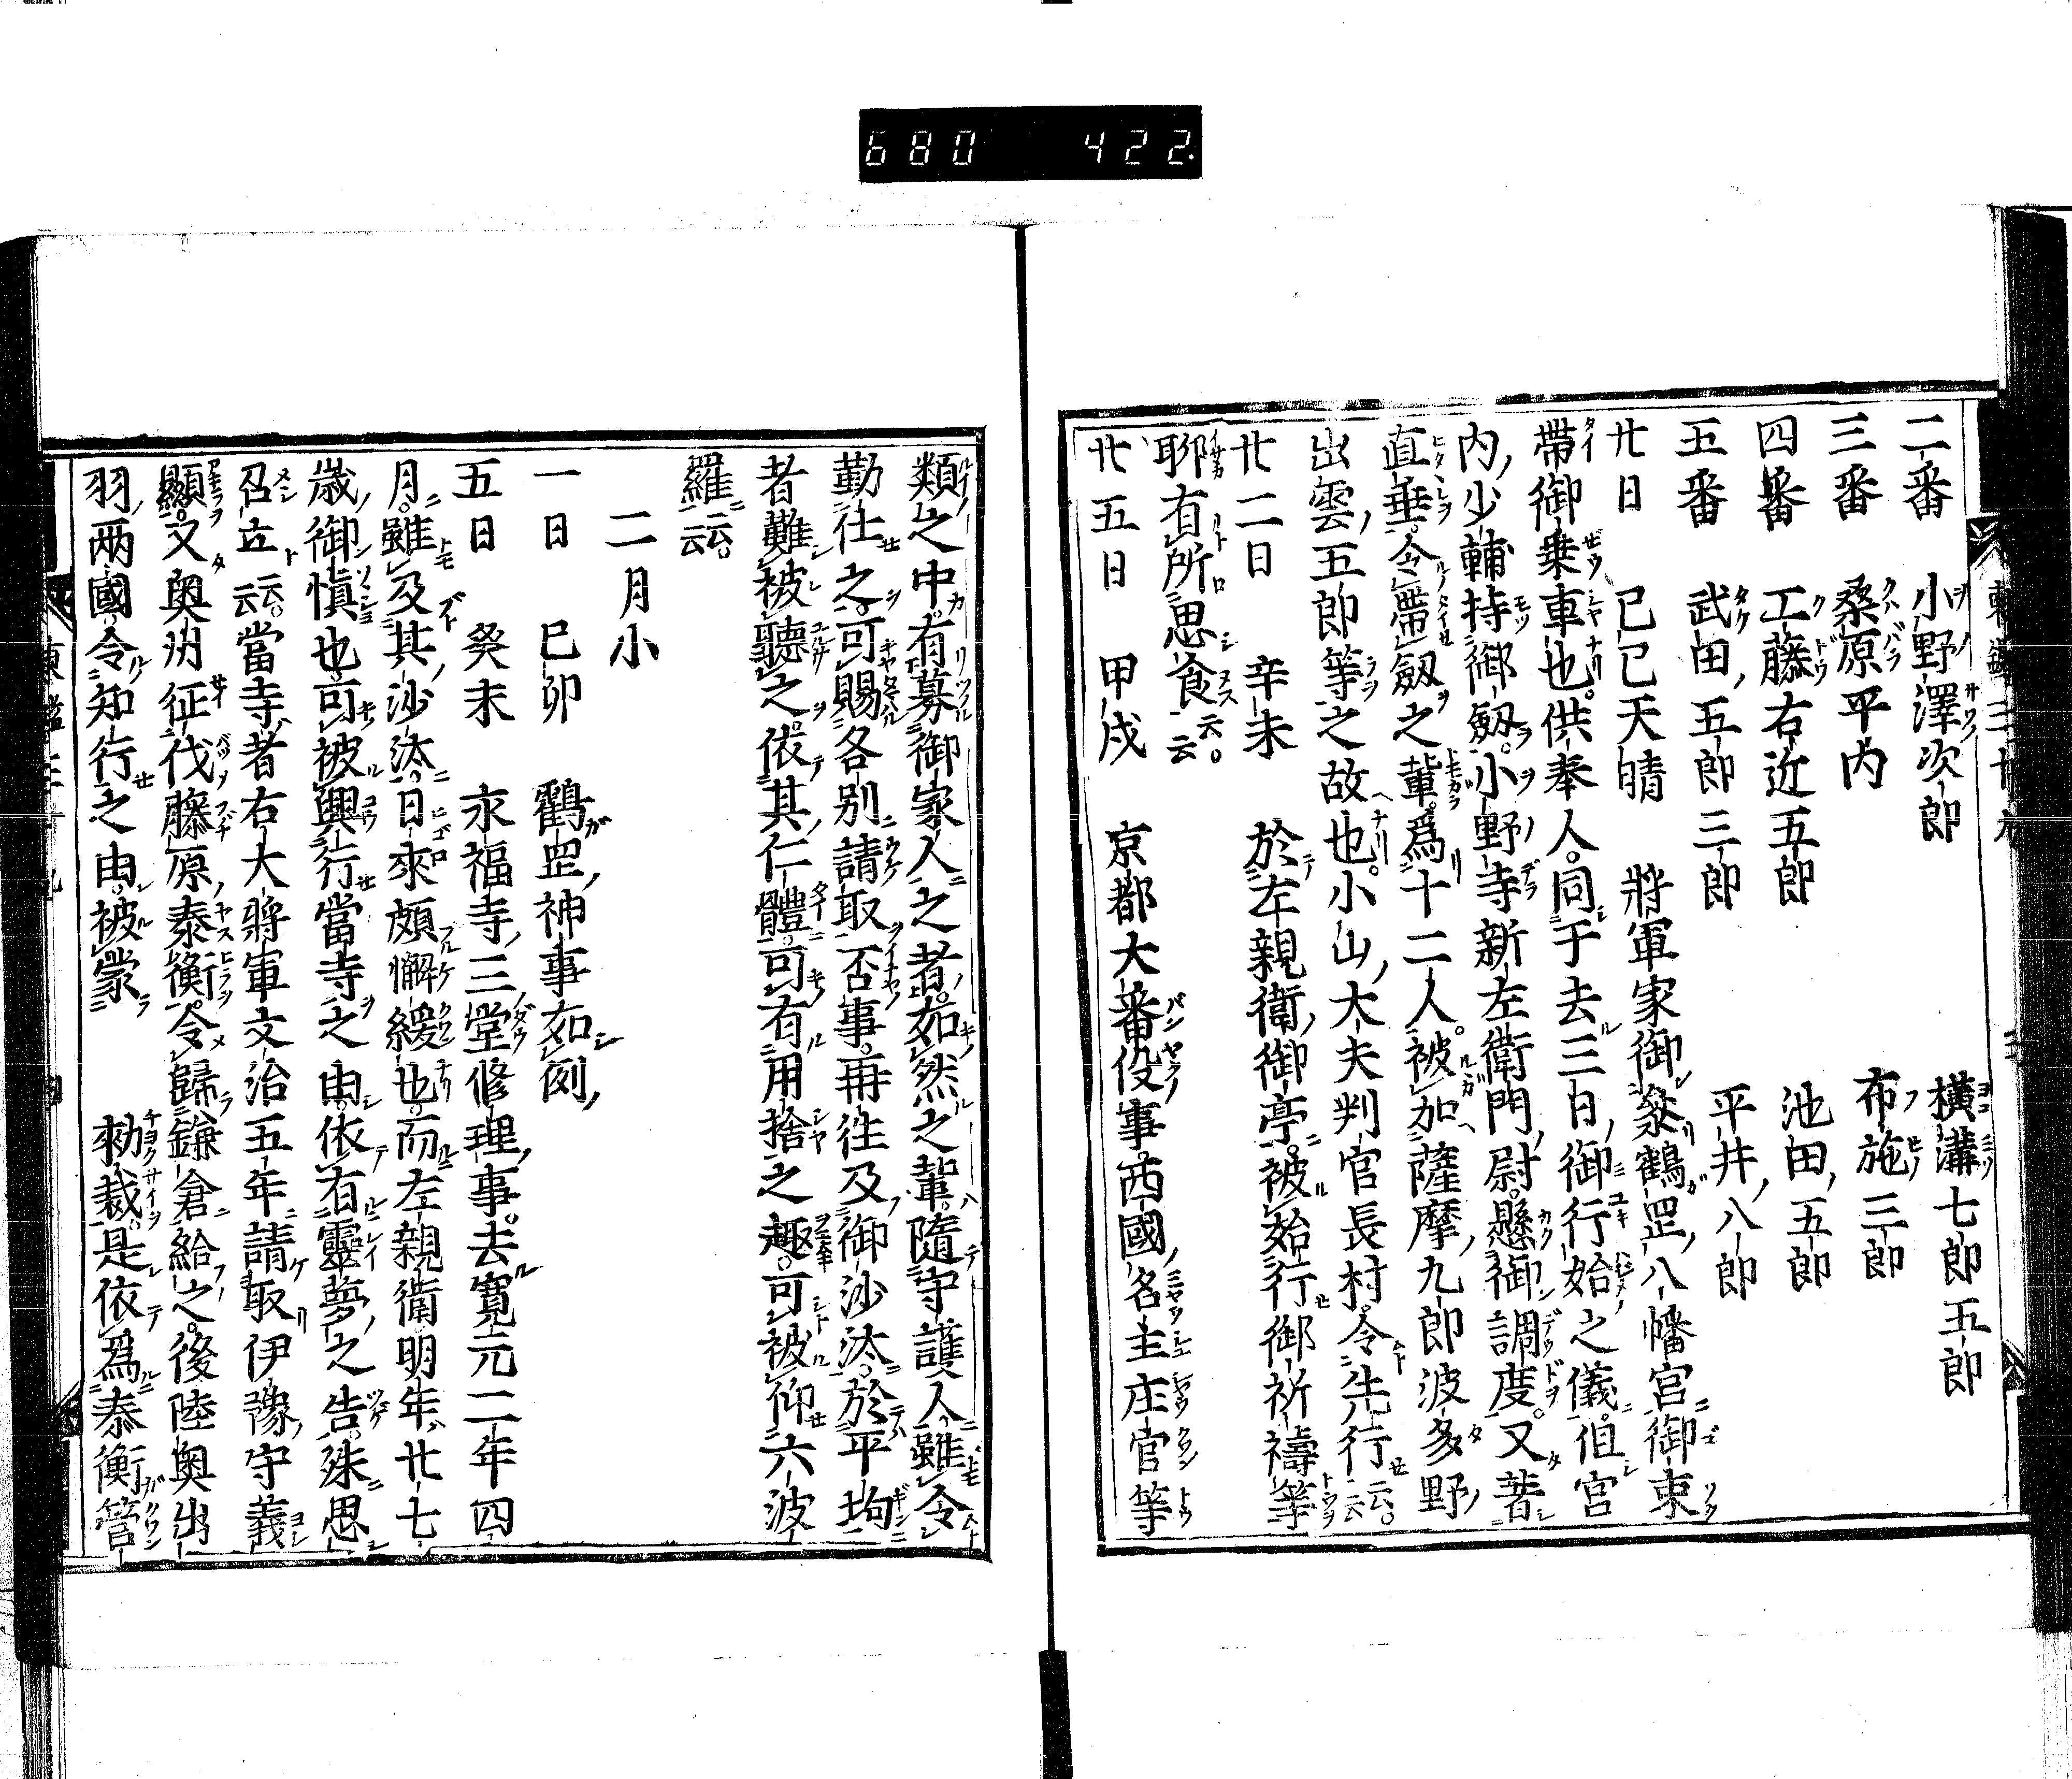 680 422.
二番 小野澤次郎 横溝七郎五郎
三番 桑原平内 布施三郎
四番 工藤右近五郎 池田五郎
五番 武田五郎三郎 平井八郎
廿日 己巳天晴 將軍家御參鶴岡八幡宮御束
帶御乗車也。供奉人。同于去三日御行始之儀。但宮
内少輔持御劔。小野寺新左衛門尉懸御調度。又著
直垂。令帶劔之輩。爲十二人。被加薩摩九郎波多野
出雲五郎等之故也。小山大夫判官長村。令先行云云。
廿二日 辛未 於左親衛御亭。被始行御祈禱等
聊有所思食云云。
廿五日 甲戌 京都大番役事。西國名主庄官等
類之中。有募御家人之者。如然之輩。隨守護人。雖令
勤仕之。可賜各別請取否事。再往及御沙汰。於平均
者難被聽之。依其仁體。可有用捨之趣。可被仰六波
羅云云。
二月小
一日 己卯 鶴岡神事如例
五日 癸未 永福寺三堂修理事。去寛元二年四
月。雖及其沙汰。日來頗懈緩也。而左親衛明年廿七
歳御愼也。可被興行當寺之由。依有靈夢之告。殊思
召立云云。當寺者右大將軍文治五年請取伊豫守義
顯。又奥州征伐藤原泰衡。令歸鎌倉給之後。陸奥出
羽兩國。令知行之由。被蒙 勅裁。是依爲泰衡管